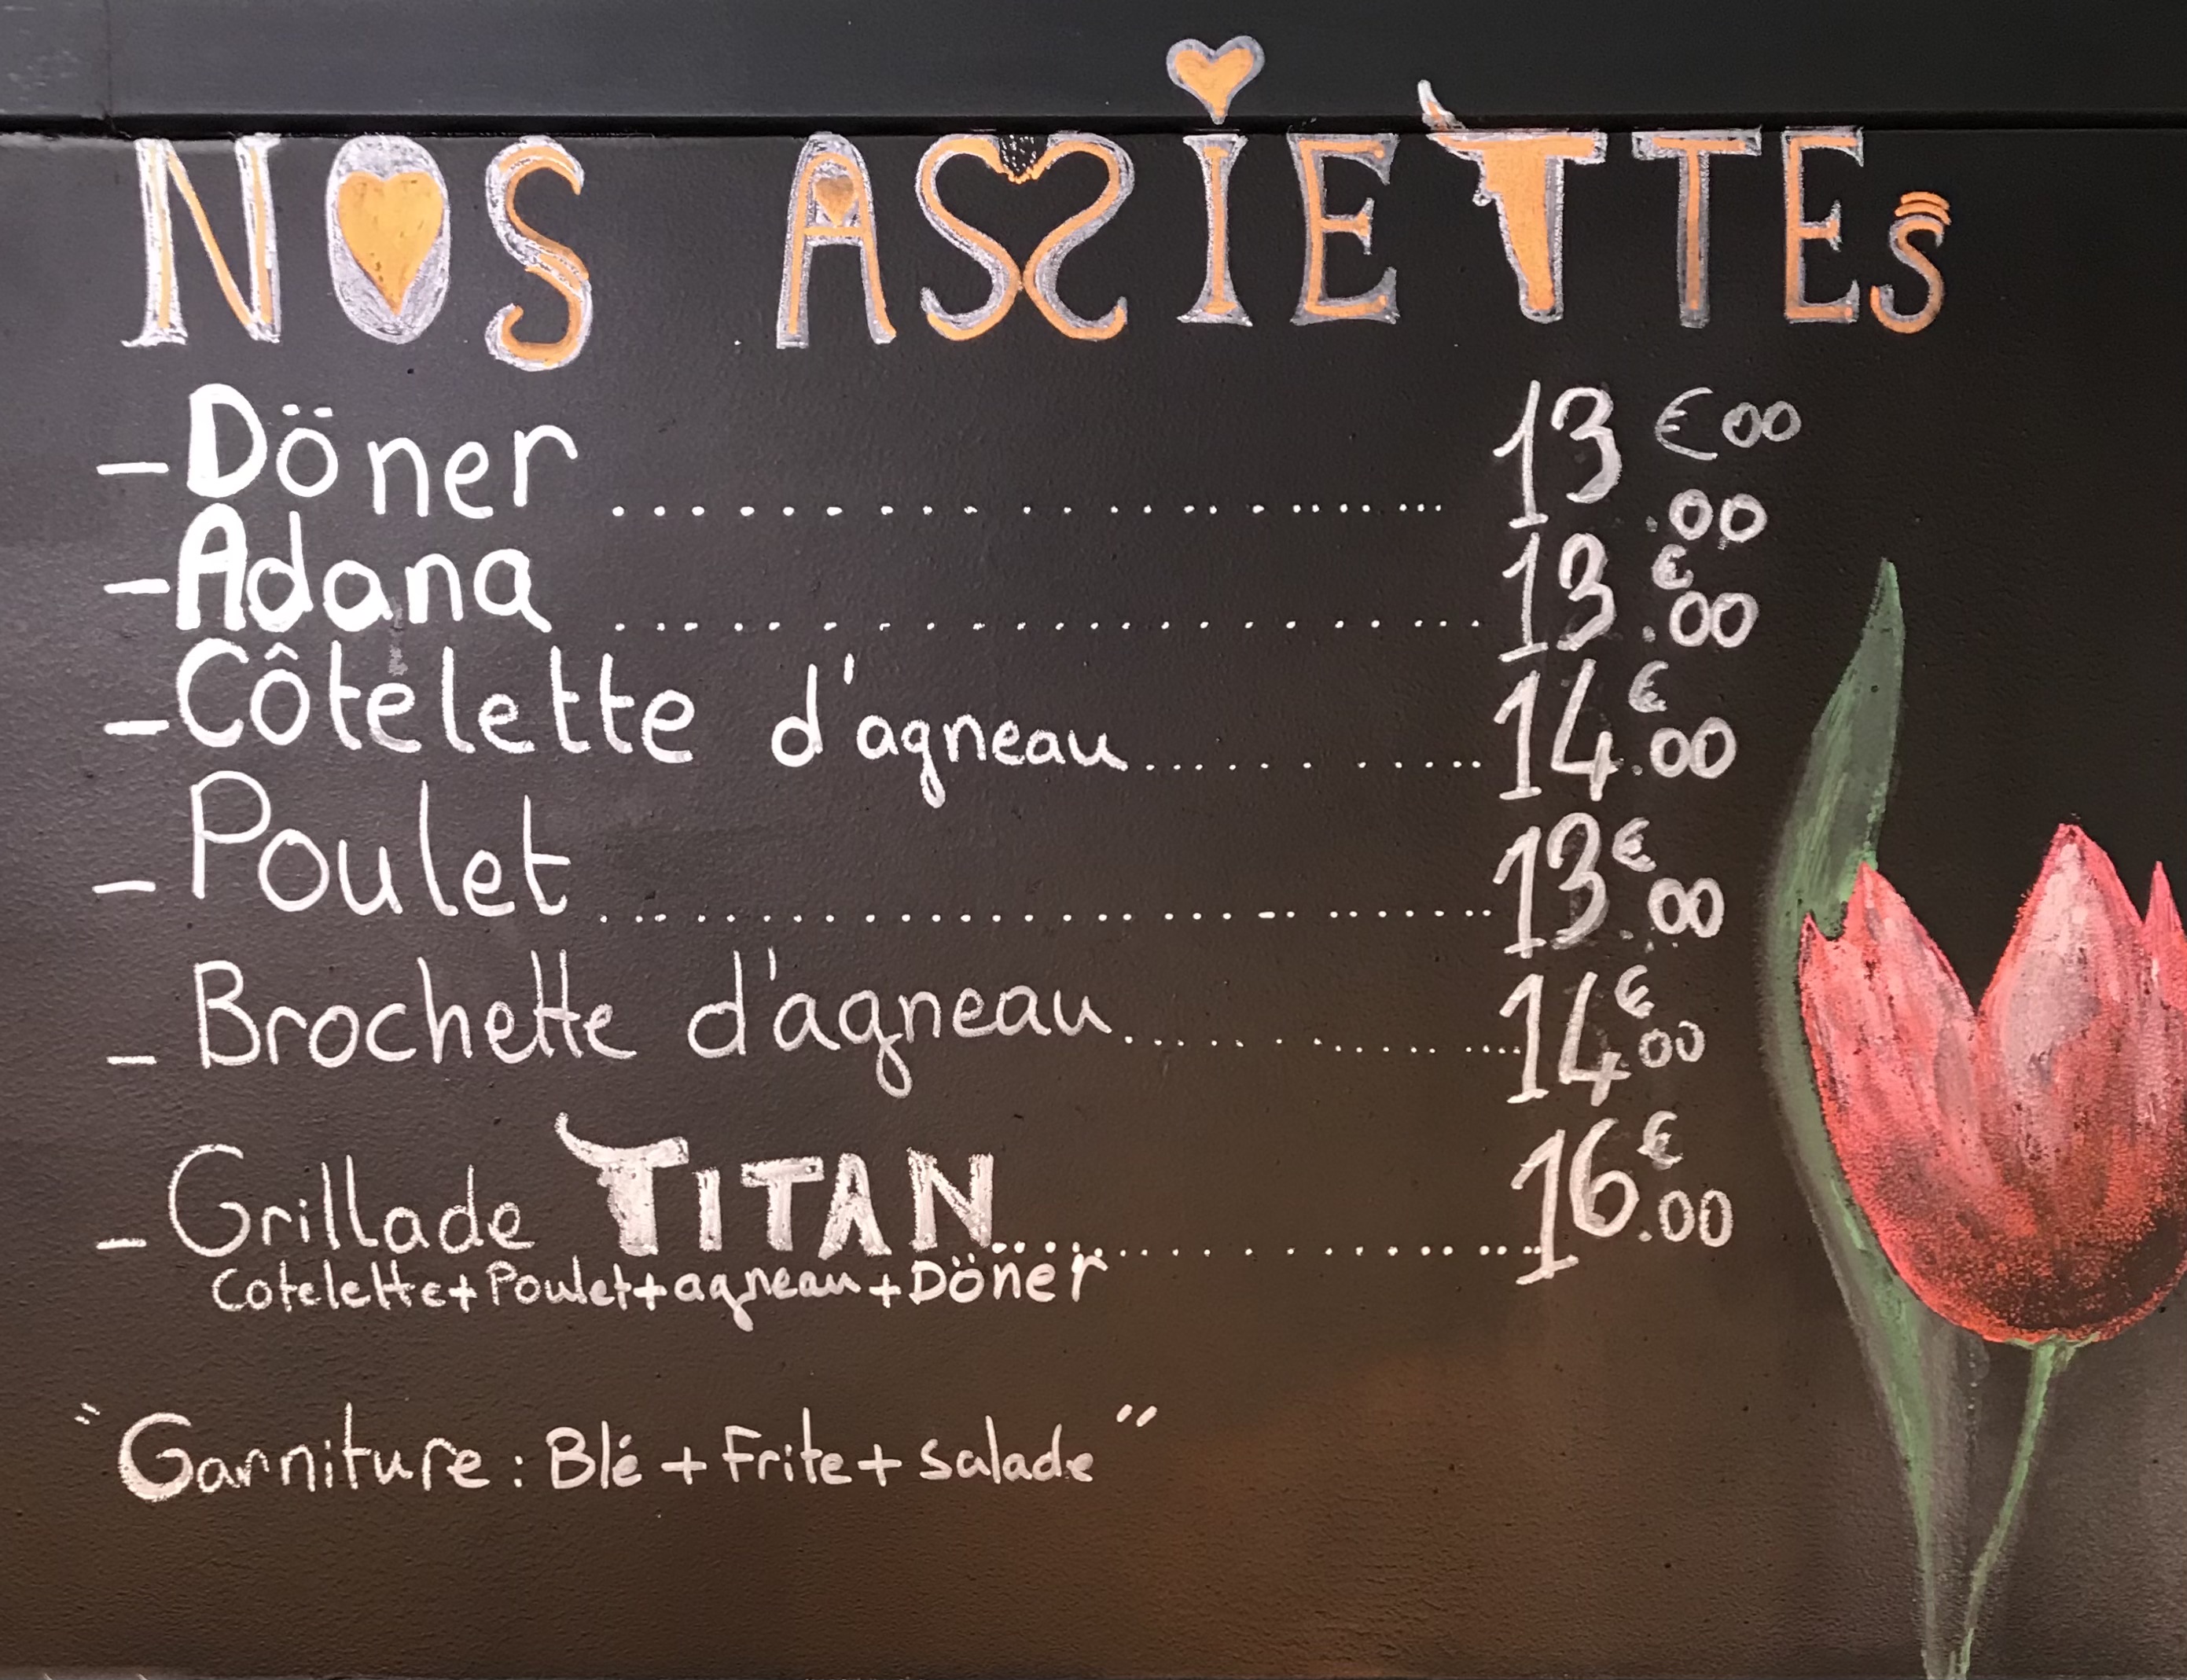 NOS ASSIETTEs
- Döner .......... 13 €00
- Adana .......... 13 €.00
- Côtelette d'agneau .......... 14 €.00
- Poulet .......... 13 €.00
- Brochette d'agneau .......... 14 €.00
- Grillade TITAN .......... 16 €.00
Cotelette + Poulet + agneau + Döner
"Garniture : Blé + Frite + Salade"